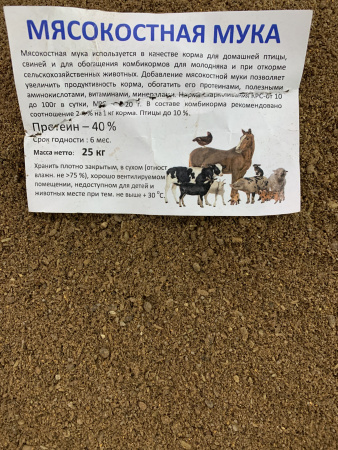 МЯСОКОСТНАЯ МУКА
Мясокостная мука используется в качестве корма для домашней птицы,
свиней и для обогащения комбикормов для молодняка и при откорме
сельскохозяйственных животных. Добавление мясокостной муки позволяет
увеличить продуктивность корма, обогатить его протеинами, полезными
аминокислотами, витаминами, минералами. от 10
до 100г в сутки, В составе комбикорма рекомендовано
соотношение на 1 кг корма. Птицы до 10 %.
Протеин – 40 %
Срок годности : 6 мес.
Масса нетто: 25 кг
Хранить плотно закрытым, в сухом (относит
влажн. не >75 %), хорошо вентилируемом
помещении, недоступном для детей и
животных месте при тем. не выше + 30 °С.